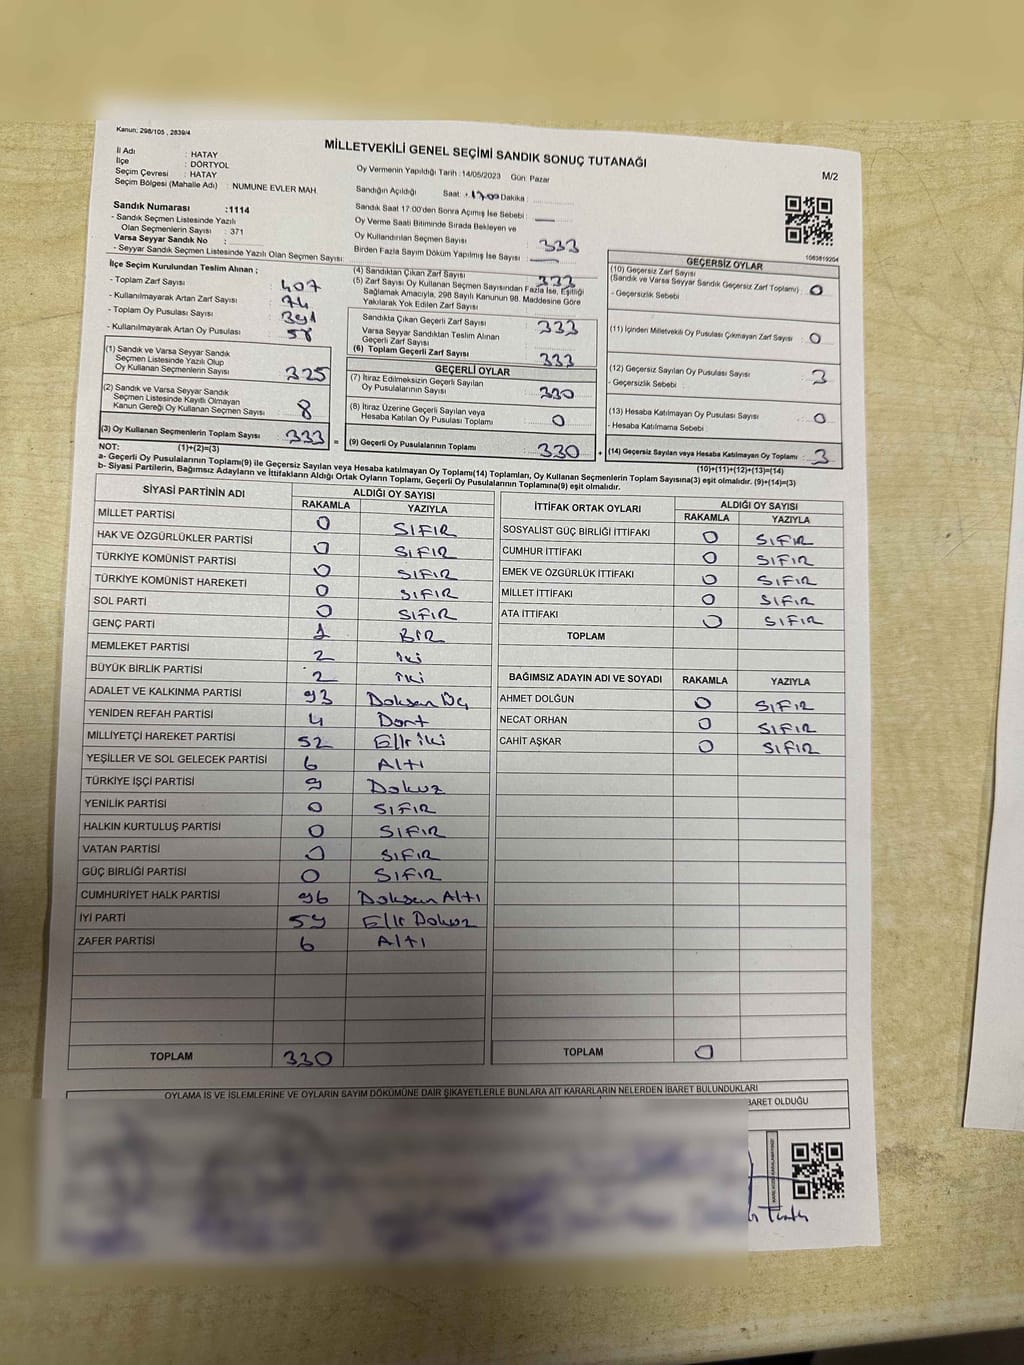 Kanun; 298/105 , 2839/4
MİLLETVEKİLİ GENEL SEÇİMİ SANDIK SONUÇ TUTANAĞI
M/2
İl Adı : HATAY
İlçe : DÖRTYOL
Seçim Çevresi : HATAY
Seçim Bölgesi (Mahalle Adı) : NUMUNE EVLER MAH.
Oy Vermenin Yapıldığı Tarih :14/05/2023 Gün: Pazar
Sandığın Açıldığı Saat: 17.00 Dakika :
Sandık Saat 17:00'den Sonra Açımış İse Sebebi :
Oy Verme Saati Bitiminde Sırada Bekleyen ve
Oy Kullandırılan Seçmen Sayısı : 333
Birden Fazla Sayım Döküm Yapılmış İse Sayısı :
Sandık Numarası :1114
- Sandık Seçmen Listesinde Yazılı
Olan Seçmenlerin Sayısı : 371
Varsa Seyyar Sandık No :
- Seyyar Sandık Seçmen Listesinde Yazılı Olan Seçmen Sayısı:
1083819204
İlçe Seçim Kurulundan Teslim Alınan ;
- Toplam Zarf Sayısı : 407
- Kullanılmayarak Artan Zarf Sayısı : 74
- Toplam Oy Pusulası Sayısı : 391
- Kullanılmayarak Artan Oy Pusulası : 58
(1) Sandık ve Varsa Seyyar Sandık
Seçmen Listesinde Yazılı Olup
Oy Kullanan Seçmenlerin Sayısı : 325
(2) Sandık ve Varsa Seyyar Sandık
Seçmen Listesinde Kayıtlı Olmayan
Kanun Gereği Oy Kullanan Seçmen Sayısı : 8
(3) Oy Kullanan Seçmenlerin Toplam Sayısı : 333 =
(4) Sandıktan Çıkan Zarf Sayısı : 333
(5) Zarf Sayısı Oy Kullanan Seçmen Sayısından Fazla İse, Eşitliği
Sağlamak Amacıyla, 298 Sayılı Kanunun 98. Maddesine Göre
Yakılarak Yok Edilen Zarf Sayısı :
Sandıkta Çıkan Geçerli Zarf Sayısı : 333
Varsa Seyyar Sandıktan Teslim Alınan
Geçerli Zarf Sayısı :
(6) Toplam Geçerli Zarf Sayısı : 333
GEÇERLİ OYLAR
(7) İtiraz Edilmeksizin Geçerli Sayılan
Oy Pusulalarının Sayısı : 330
(8) İtiraz Üzerine Geçerli Sayılan veya
Hesaba Katılan Oy Pusulası Toplamı : 0
(9) Geçerli Oy Pusulalarının Toplamı : 330 +
GEÇERSİZ OYLAR
(10) Geçersiz Zarf Sayısı
(Sandık ve Varsa Seyyar Sandık Geçersiz Zarf Toplamı) : 0
- Geçersizlik Sebebi
(11) İçinden Milletvekili Oy Pusulası Çıkmayan Zarf Sayısı : 0
(12) Geçersiz Sayılan Oy Pusulası Sayısı : 3
- Geçersizlik Sebebi
(13) Hesaba Katılmayan Oy Pusulası Sayısı : 0
- Hesaba Katılmama Sebebi
(14) Geçersiz Sayılan veya Hesaba Katılmayan Oy Toplamı : 3
NOT: (1)+(2)=(3)
(10)+(11)+(12)+(13)=(14)
a- Geçerli Oy Pusulalarının Toplamı(9) ile Geçersiz Sayılan veya Hesaba katılmayan Oy Toplamı(14) Toplamları, Oy Kullanan Seçmenlerin Toplam Sayısına(3) eşit olmalıdır. (9)+(14)=(3)
b- Siyasi Partilerin, Bağımsız Adayların ve İttifakların Aldığı Ortak Oyların Toplamı, Geçerli Oy Pusulalarının Toplamına(9) eşit olmalıdır.
SİYASİ PARTİNİN ADI ALDIĞI OY SAYISI
RAKAMLA YAZIYLA
MİLLET PARTİSİ 0 SIFIR
HAK VE ÖZGÜRLÜKLER PARTİSİ 0 SIFIR
TÜRKİYE KOMÜNİST PARTİSİ 0 SIFIR
TÜRKİYE KOMÜNİST HAREKETİ 0 SIFIR
SOL PARTİ 0 SIFIR
GENÇ PARTİ 1 BİR
MEMLEKET PARTİSİ 2 iki
BÜYÜK BİRLİK PARTİSİ 2 iki
ADALET VE KALKINMA PARTİSİ 93 Doksan Üç
YENİDEN REFAH PARTİSİ 4 Dört
MİLLİYETÇİ HAREKET PARTİSİ 52 Elli iki
YEŞİLLER VE SOL GELECEK PARTİSİ 6 Altı
TÜRKİYE İŞÇİ PARTİSİ 9 Dokuz
YENİLİK PARTİSİ 0 SIFIR
HALKIN KURTULUŞ PARTİSİ 0 SIFIR
VATAN PARTİSİ 0 SIFIR
GÜÇ BİRLİĞİ PARTİSİ 0 SIFIR
CUMHURİYET HALK PARTİSİ 96 Doksan Altı
İYİ PARTİ 59 Elli Dokuz
ZAFER PARTİSİ 6 Altı
TOPLAM 330
İTTİFAK ORTAK OYLARI ALDIĞI OY SAYISI
RAKAMLA YAZIYLA
SOSYALİST GÜÇ BİRLİĞİ İTTİFAKI 0 SIFIR
CUMHUR İTTİFAKI 0 SIFIR
EMEK VE ÖZGÜRLÜK İTTİFAKI 0 SIFIR
MİLLET İTTİFAKI 0 SIFIR
ATA İTTİFAKI 0 SIFIR
TOPLAM
BAĞIMSIZ ADAYIN ADI VE SOYADI RAKAMLA YAZIYLA
AHMET DOLĞUN 0 SIFIR
NECAT ORHAN 0 SIFIR
CAHİT AŞKAR 0 SIFIR
TOPLAM 0
OYLAMA İŞ VE İŞLEMLERİNE VE OYLARIN SAYIM DÖKÜMÜNE DAİR ŞİKAYETLERLE BUNLARA AİT KARARLARIN NELERDEN İBARET BULUNDUKLARI
BARET OLDUĞU